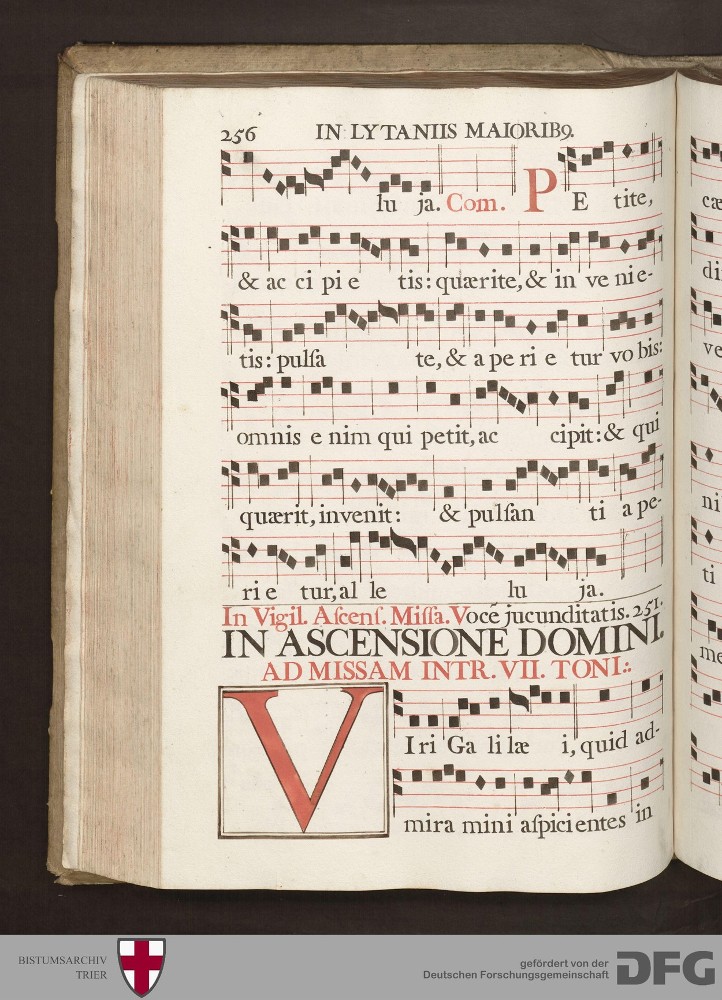 256 IN LYTANIIS MAIORIB9.
lu ja. Com. PE tite,
& ac ci pi e tis: quærite, & in ve nie-
tis: pulſa te, & a pe ri e tur vo bis:
omnis e nim qui petit, ac cipit: & qui
quærit, invenit: & pulſan ti a pe-
ri e tur, al le lu ja.
In Vigil. Aſcenſ. Miſſa. Vocē jucunditatis. 251.
IN ASCENSIONE DOMINI.
AD MISSAM INTR. VII. TONI.:.
VIri Ga li læ i, quid ad-
mira mini aſpici entes in
cæ
di
ve
ni
ti
me
BISTUMSARCHIV
TRIER
gefördert von der
Deutschen Forschungsgemeinschaft
DFG